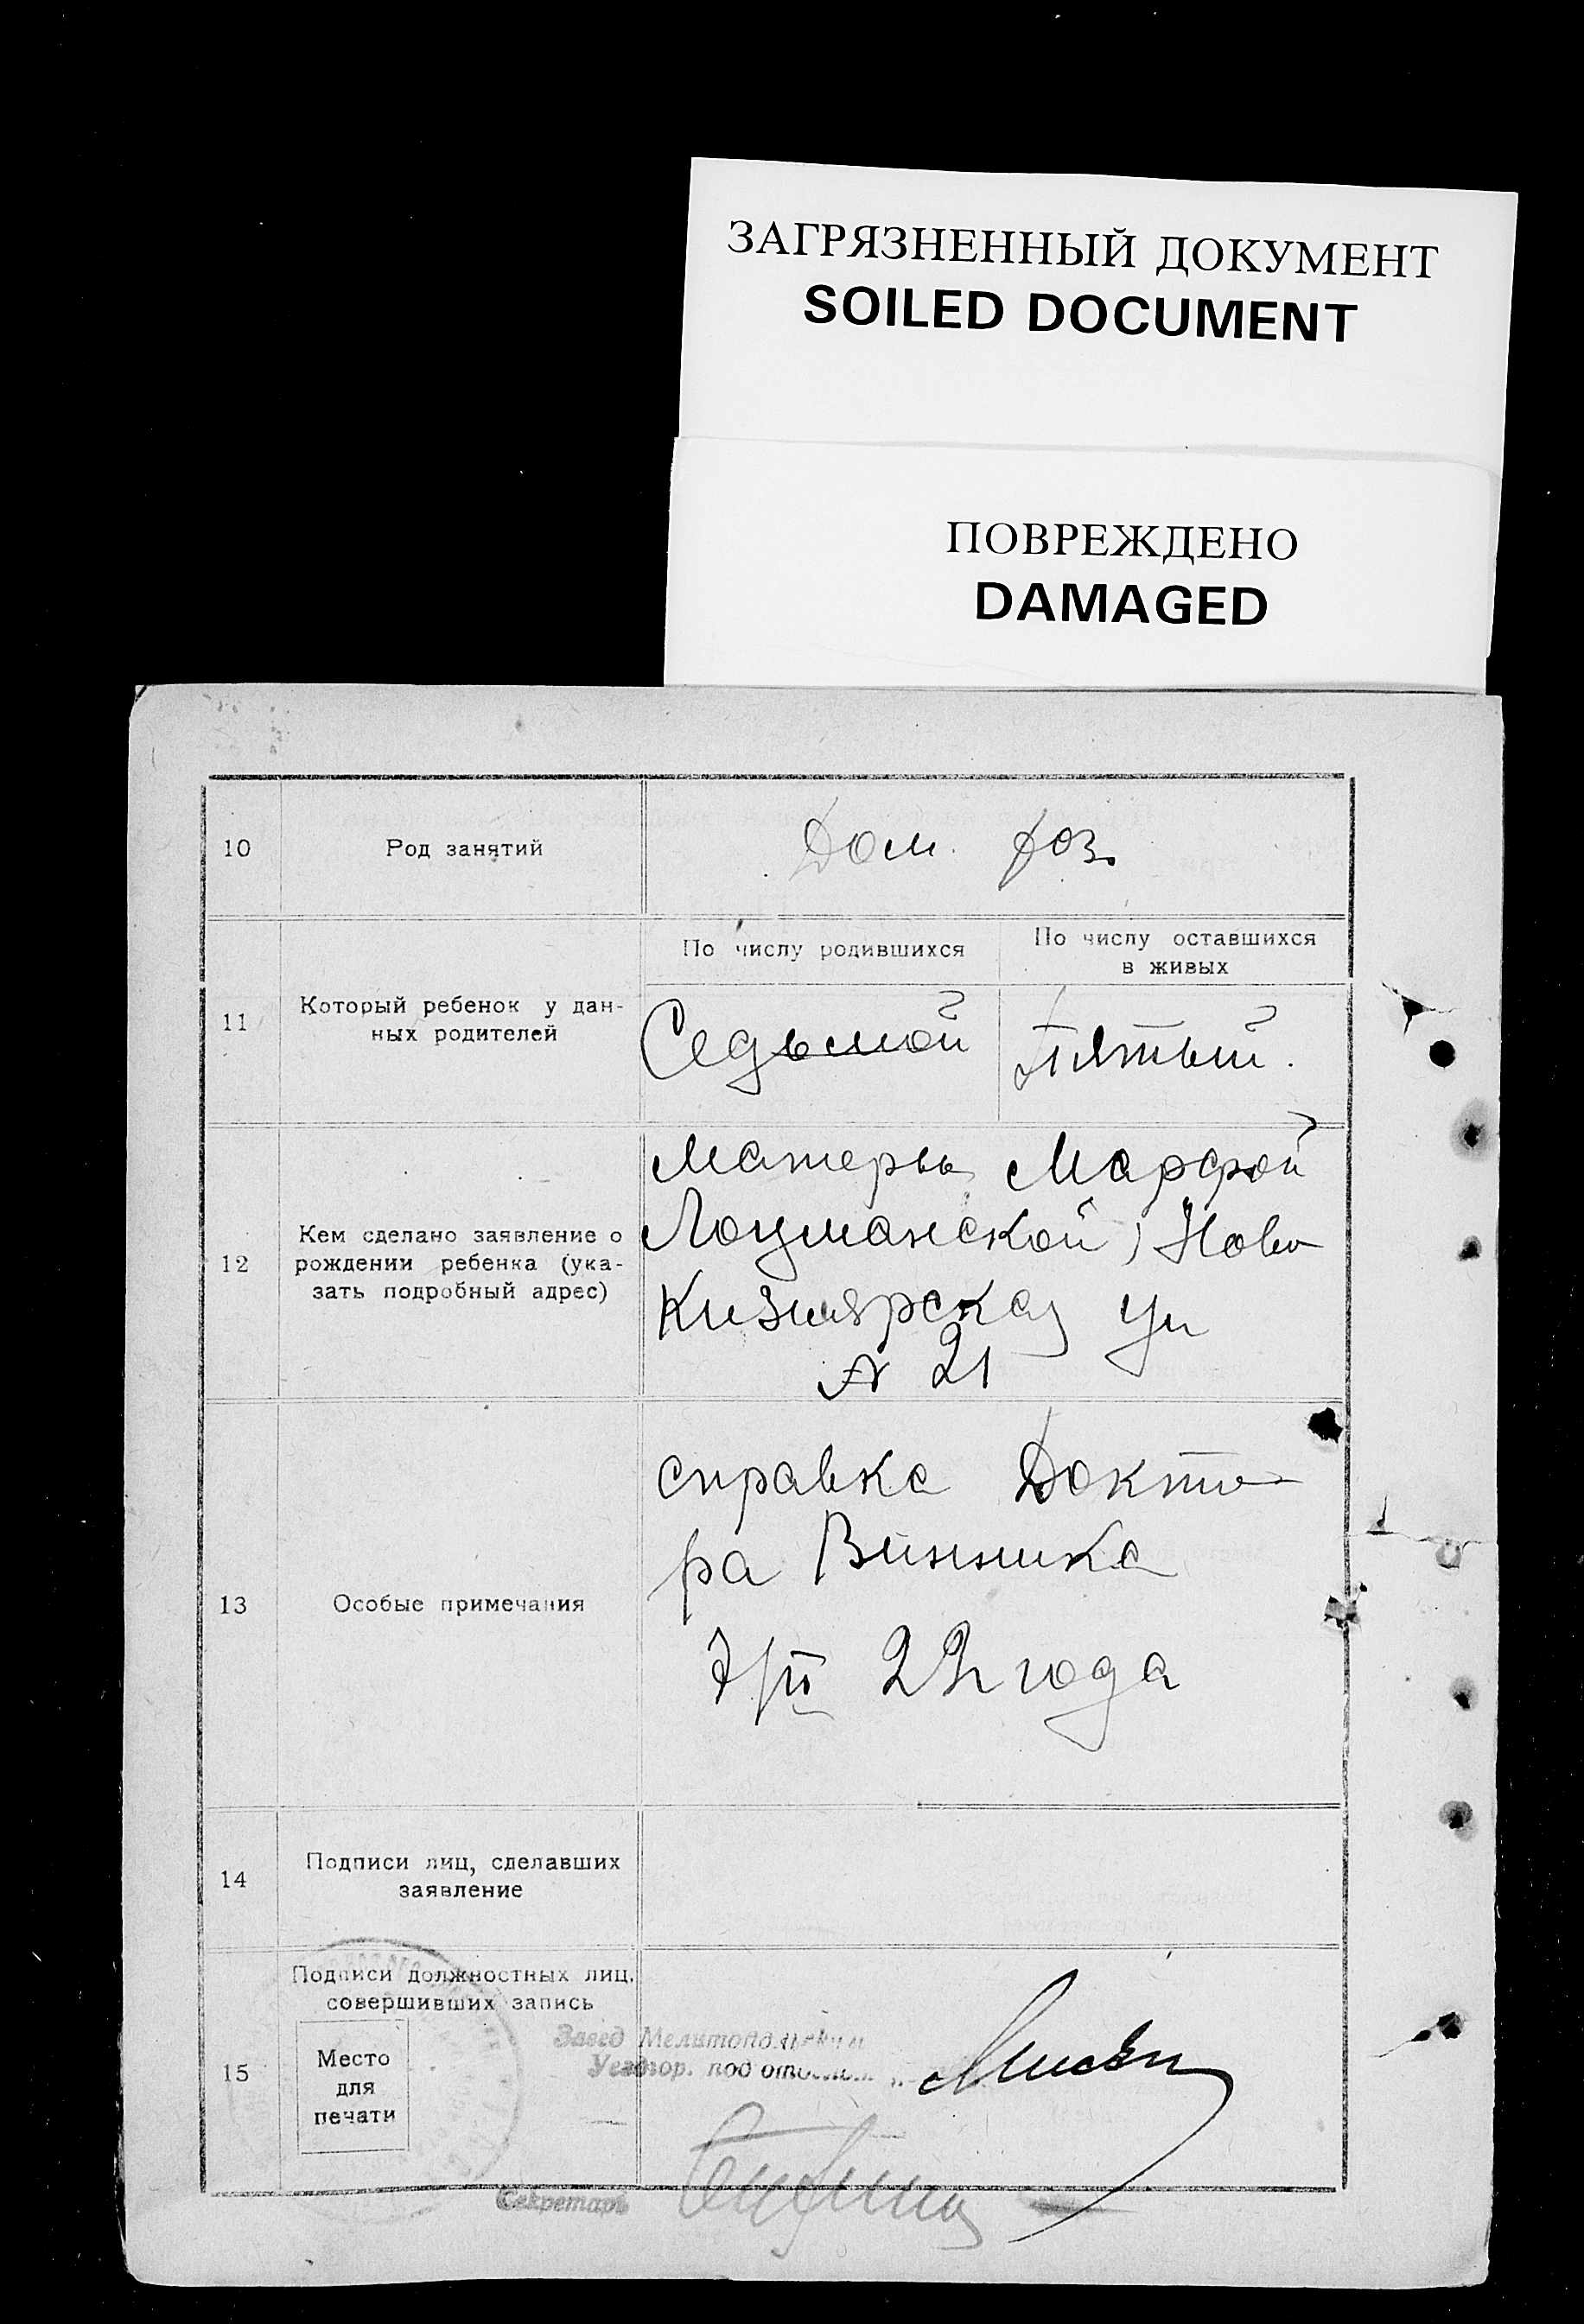 ЗАГРЯЗНЕННЫЙ ДОКУМЕНТ
SOILED DOCUMENT
ПОВРЕЖДЕНО
DAMAGED
10
Род занятий
Дом. хоз.
11
Который ребенок у дан-
ных родителей
По числу родившихся
По числу оставшихся
в живых
Седьмой
Пятый.
12
Кем сделано заявление о
рождении ребенка (ука-
зать подробный адрес)
Матерью Марфой
Лоцманской, Ново
Кизиярская ул
№ 21
13
Особые примечания
справка Докто-
ра Винника
года
14
Подписи лиц, сделавших
заявление
15
Подписи должностных лиц,
совершивших запись
Место
для
печати
Завед
под
Секретарь